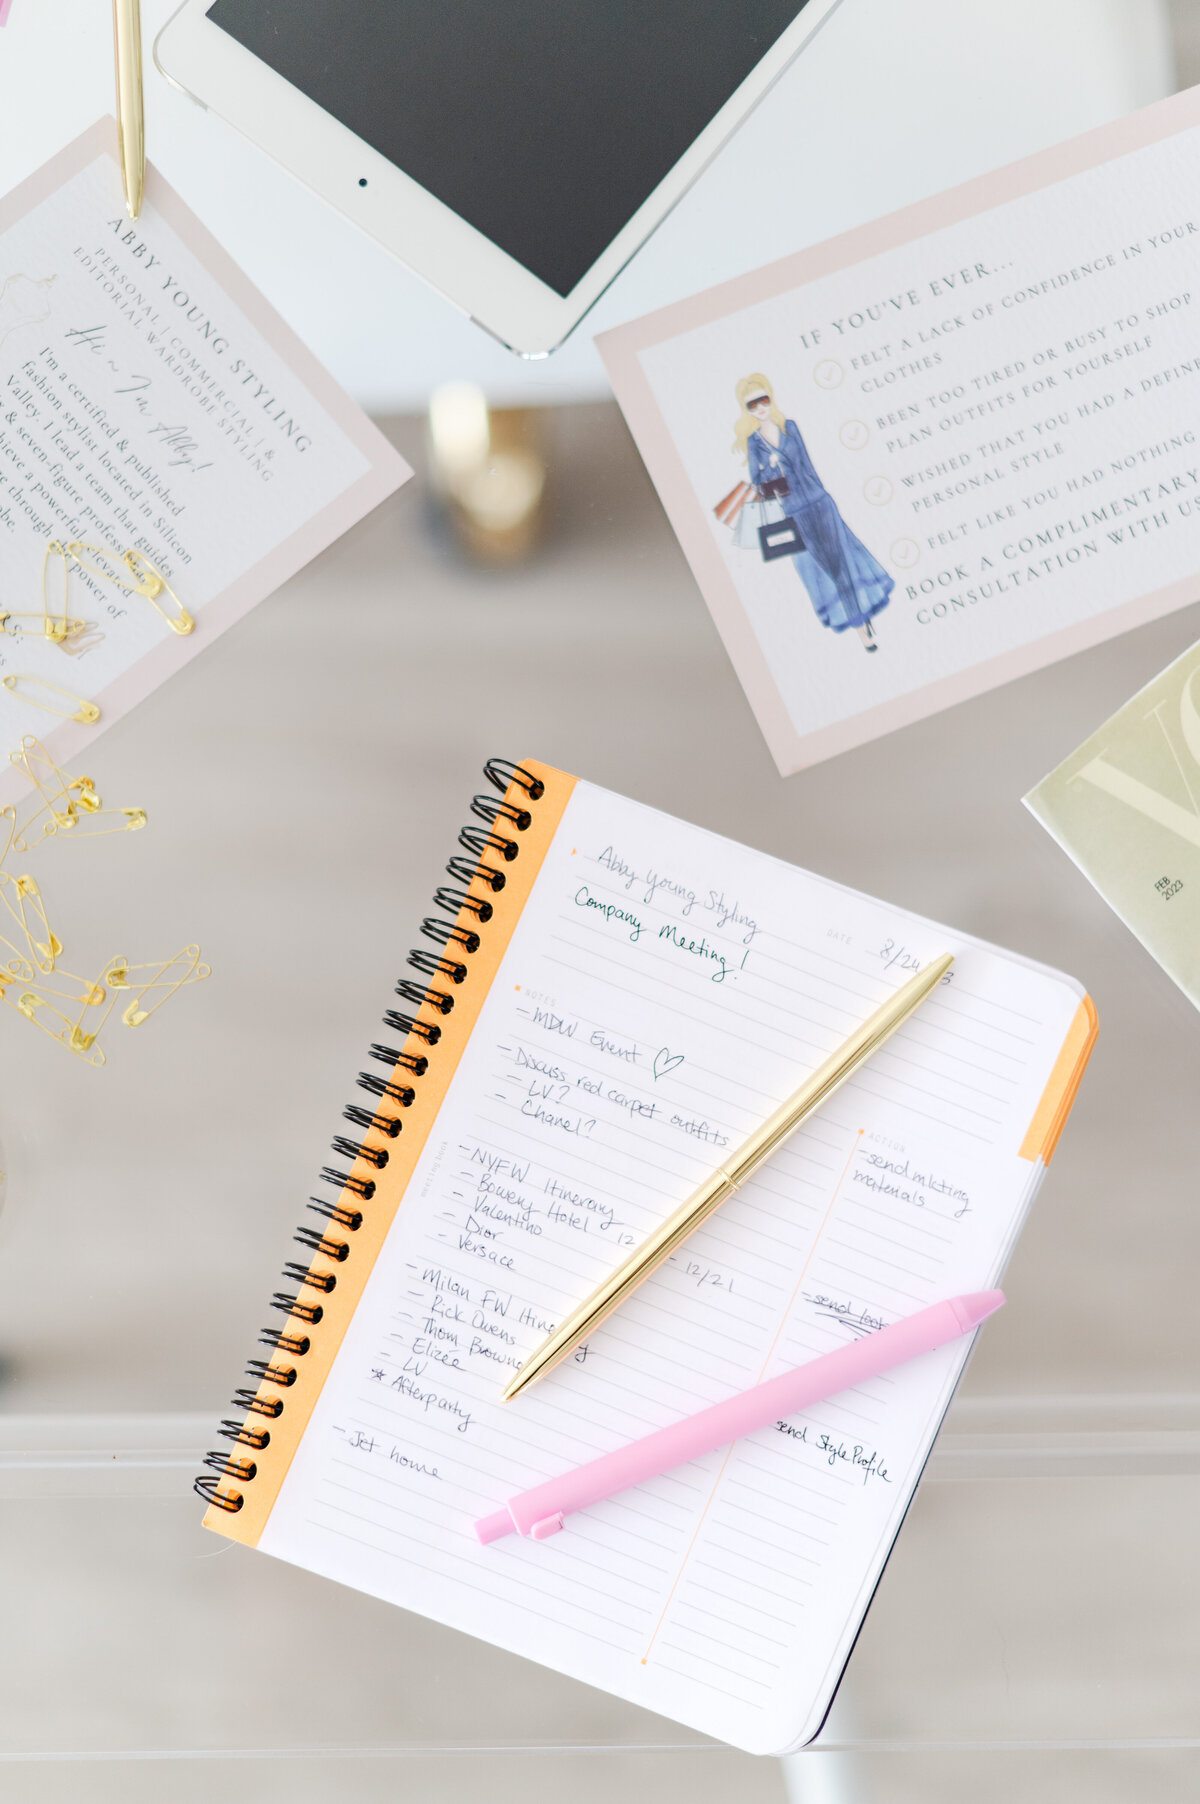 ABBY YOUNG STYLING
PERSONAL | COMMERCIAL | &
EDITORIAL WARDROBE STYLING
Hi ~ I'm Abby!
I'm a certified & published
fashion stylist located in Silicon
Valley. I lead a team that guides
& seven-figure
a powerful, elevated
through
power of
IF YOU'VE EVER...
FELT A LACK OF CONFIDENCE IN YOUR
CLOTHES
BEEN TOO TIRED OR BUSY TO SHOP
PLAN OUTFITS FOR YOURSELF
WISHED THAT YOU HAD A
PERSONAL STYLE
FELT LIKE YOU HAD NOTHING
BOOK A COMPLIMENTARY
CONSULTATION WITH
FEB
2023
Abby Young Styling
Company Meeting!
DATE 8/24 3
NOTES
- MDW Event
- Discuss red carpet outfits
- LV?
- Chanel?
- NYFW Itinerary
- Bowery Hotel 12 - 12/21
- Valentino
- Dior
- Versace
- Milan FW
- Rick Owens
- Thom Browne
- Elizée
- LV
* Afterparty
- Jet home
meeting book
ACTION
- send mkting
materials
- send
send Style Profile